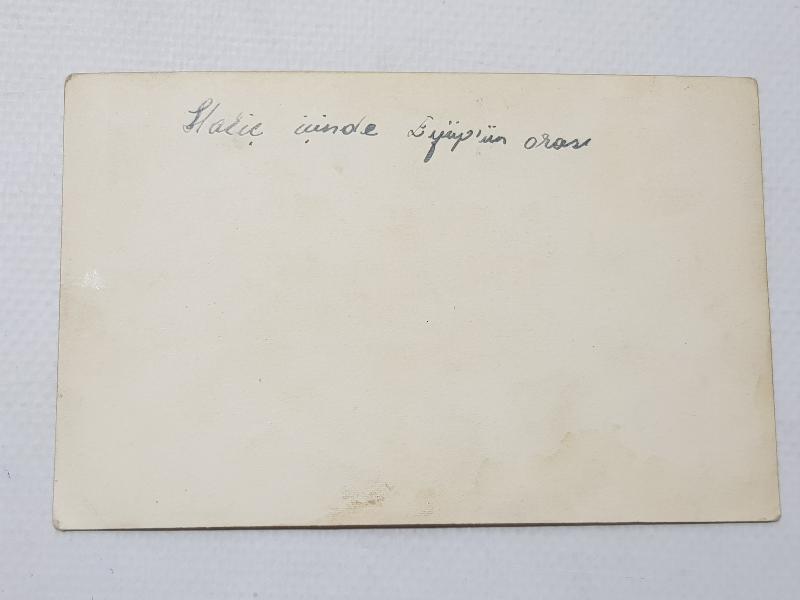 Haliç içinde Eyüp'ün orası